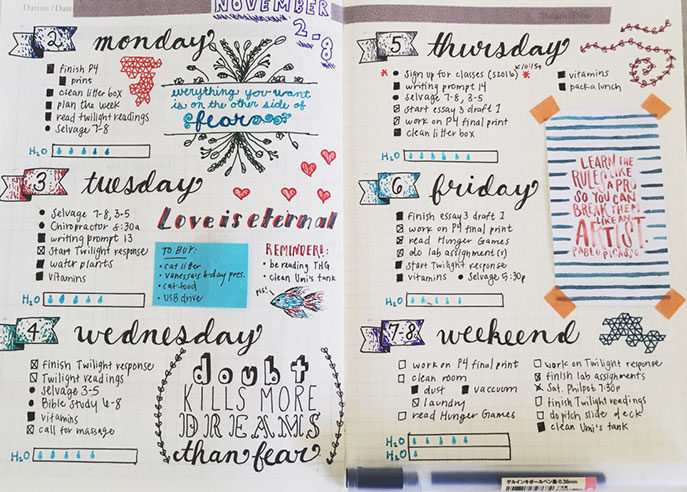 Datum / Date:
NOVEMBER
2-8
2 monday
finish P4
print
clean litter box
plan the week
read twilight readings
Selvage 7-8
H₂O
everything you want
is on the other side of
fear
3 tuesday
Selvage 7-8, 3-5
Chiropractor 6:30a
writing prompt 13
start Twilight response
water plants
vitamins
H₂O
Love is eternal
TO BUY:
cat litter
vanessa's b-day pres.
cat food
USB drive
REMINDER!:
be reading THG
clean Umi's tank
pls!
4 wednesday
finish Twilight response
Twilight readings
Selvage 3-5
Bible Study 6-8
vitamins
call for massage
H₂O
doubt
KILLS MORE
DREAMS
than fear
5 thursday
Sign up for classes (S2016)
writing prompt 14
Selvage 7-8, 3-5
start essay 3 draft 1
work on P4 final print
clean litter box
vitamins
pack a lunch
H₂O
LEARN THE
RULES LIKE
A PRO
SO YOU CAN
BREAK THEM
LIKE AN
ARTIST.
PABLO PICASSO
6 friday
finish essay 3 draft 1
work on P4 final print
read Hunger Games
do lab assignment(s)
start Twilight response
vitamins • Selvage 5:30p
H₂O
7-8 weekend
work on P4 final print
clean room
dust
vaccuum
laundry
read Hunger Games
work on Twilight response
finish lab assignments
Sat. Philpot 7:30p
finish Twilight readings
do pitch slide deck
clean Umi's tank
H₂O
H₂O
ゲルインキボールペン 黒・0.38mm